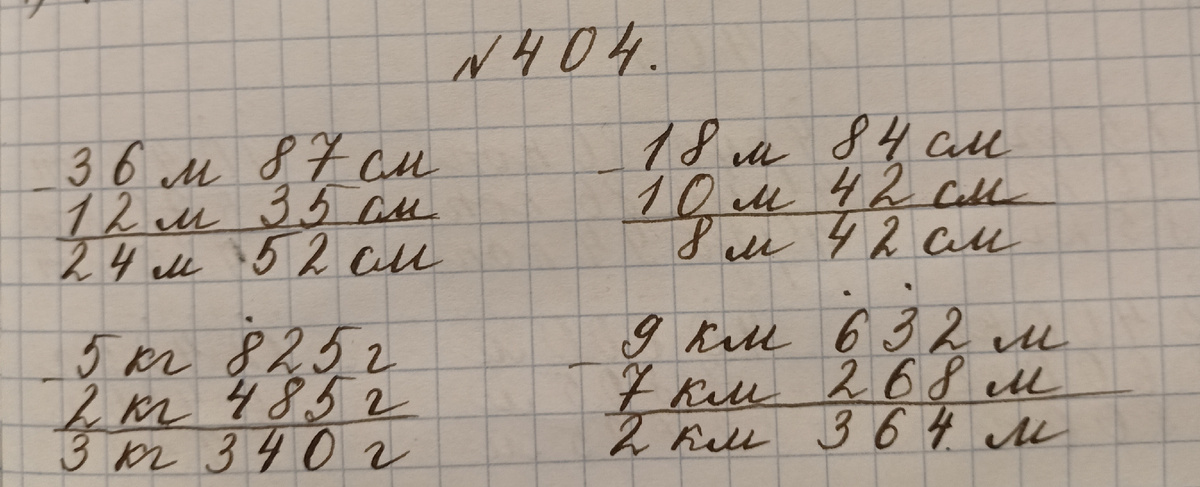 № 404.
- 36 м 87 см
12 м 35 см
24 м 52 см
- 18 м 84 см
10 м 42 см
8 м 42 см
- 5 кг 825 г
2 кг 485 г
3 кг 340 г
- 9 км 632 м
7 км 268 м
2 км 364. м